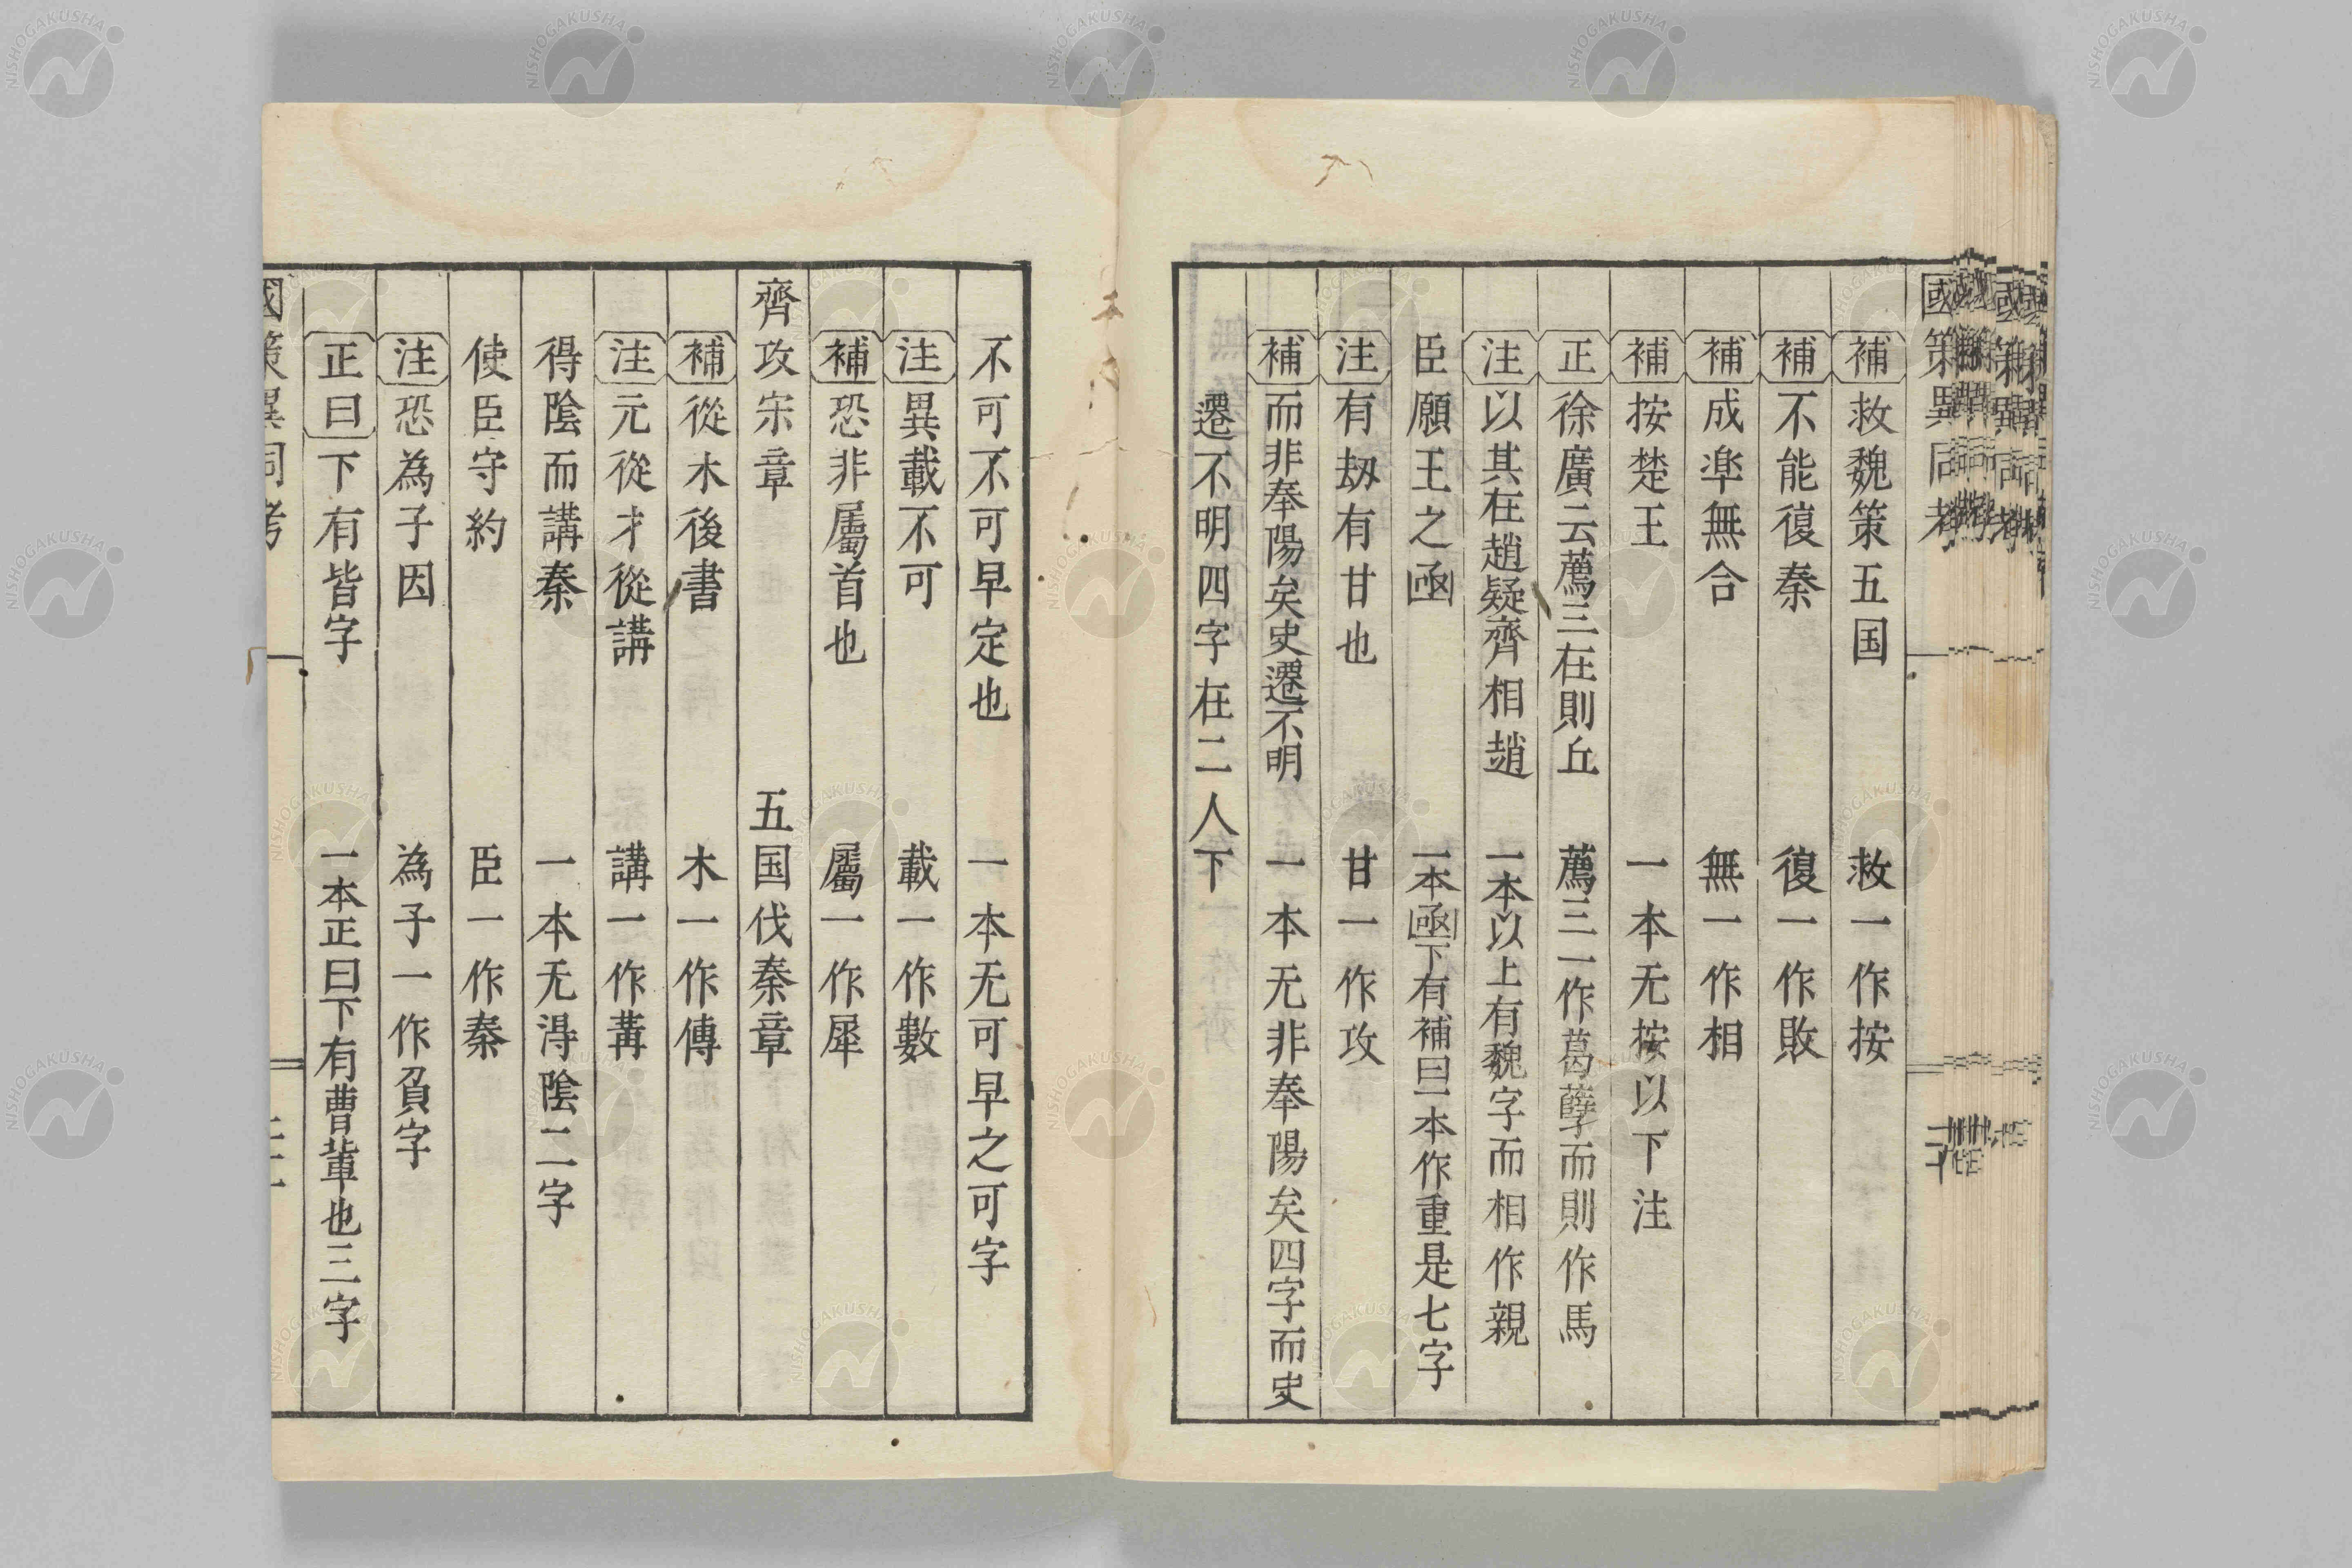 國策異同考
補 救魏策五国 救一作按
補 不能復秦 復一作敗
補 成率無合 無一作相
補 按楚王 一本无按以下注
正 徐廣云薦三在則丘 薦三一作葛孽而則作馬
注 以其在趙疑齊相趙 一本以上有魏字而相作親
臣願王之凾 一本凾下有補曰一本作重是七字
注 有劫有甘也 甘一作攻
補 而非奉陽矣史遷不明 一本无非奉陽矣四字而史
遷不明四字在二人下
不可不可早定也 一本无可早之可字
注 異載不可 載一作數
補 恐非屬首也 屬一作犀
齊攻宋章 五国伐秦章
補 從木後書 木一作傳
注 元從才從講 講一作冓
得陰而講秦 一本无淂陰二字
使臣守約 臣一作秦
注 恐為子因 為子一作負字
正曰 下有皆字 一本正曰下有曹輩也三字
國策異同考
NISHOGAKUSHA